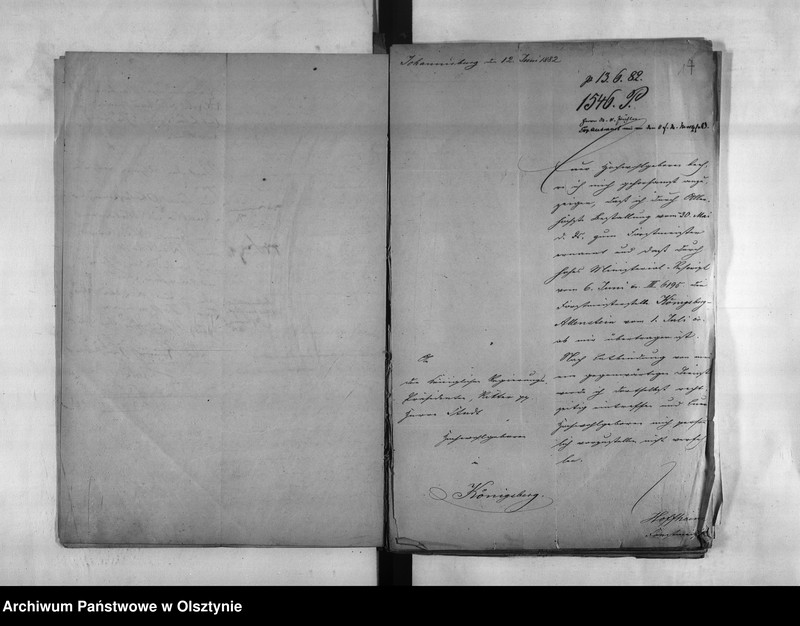 Johannisburg d. 12. Juni 1882
7
pr 13.6.82.
1546. P.
Euer Hochwohlgeboren beeh-
re ich mich gehorsamst anzu-
zeigen, daß ich durch Aller-
höchste Bestallung vom 30. Mai
d. Js. zum Forstmeister
ernannt und daß durch
hohes Ministerial-Rescript
vom 6. Juni c. III. 6195 die
Forstmeisterstelle Königsberg-
Allenstein vom 1. Juli c.
ab mir übertragen ist.
Nach Entbindung von mei-
nem gegenwärtigen Dienst
werde ich daselbst recht-
zeitig eintreffen und Euer
Hochwohlgeboren mich persön-
lich vorzustellen nicht verfeh-
len.
An
den Königlichen Regierungs-
Präsidenten, Ritter pp
Herrn
Hochwohlgeboren
à
Königsberg.
Archiwum Państwowe w Olsztynie